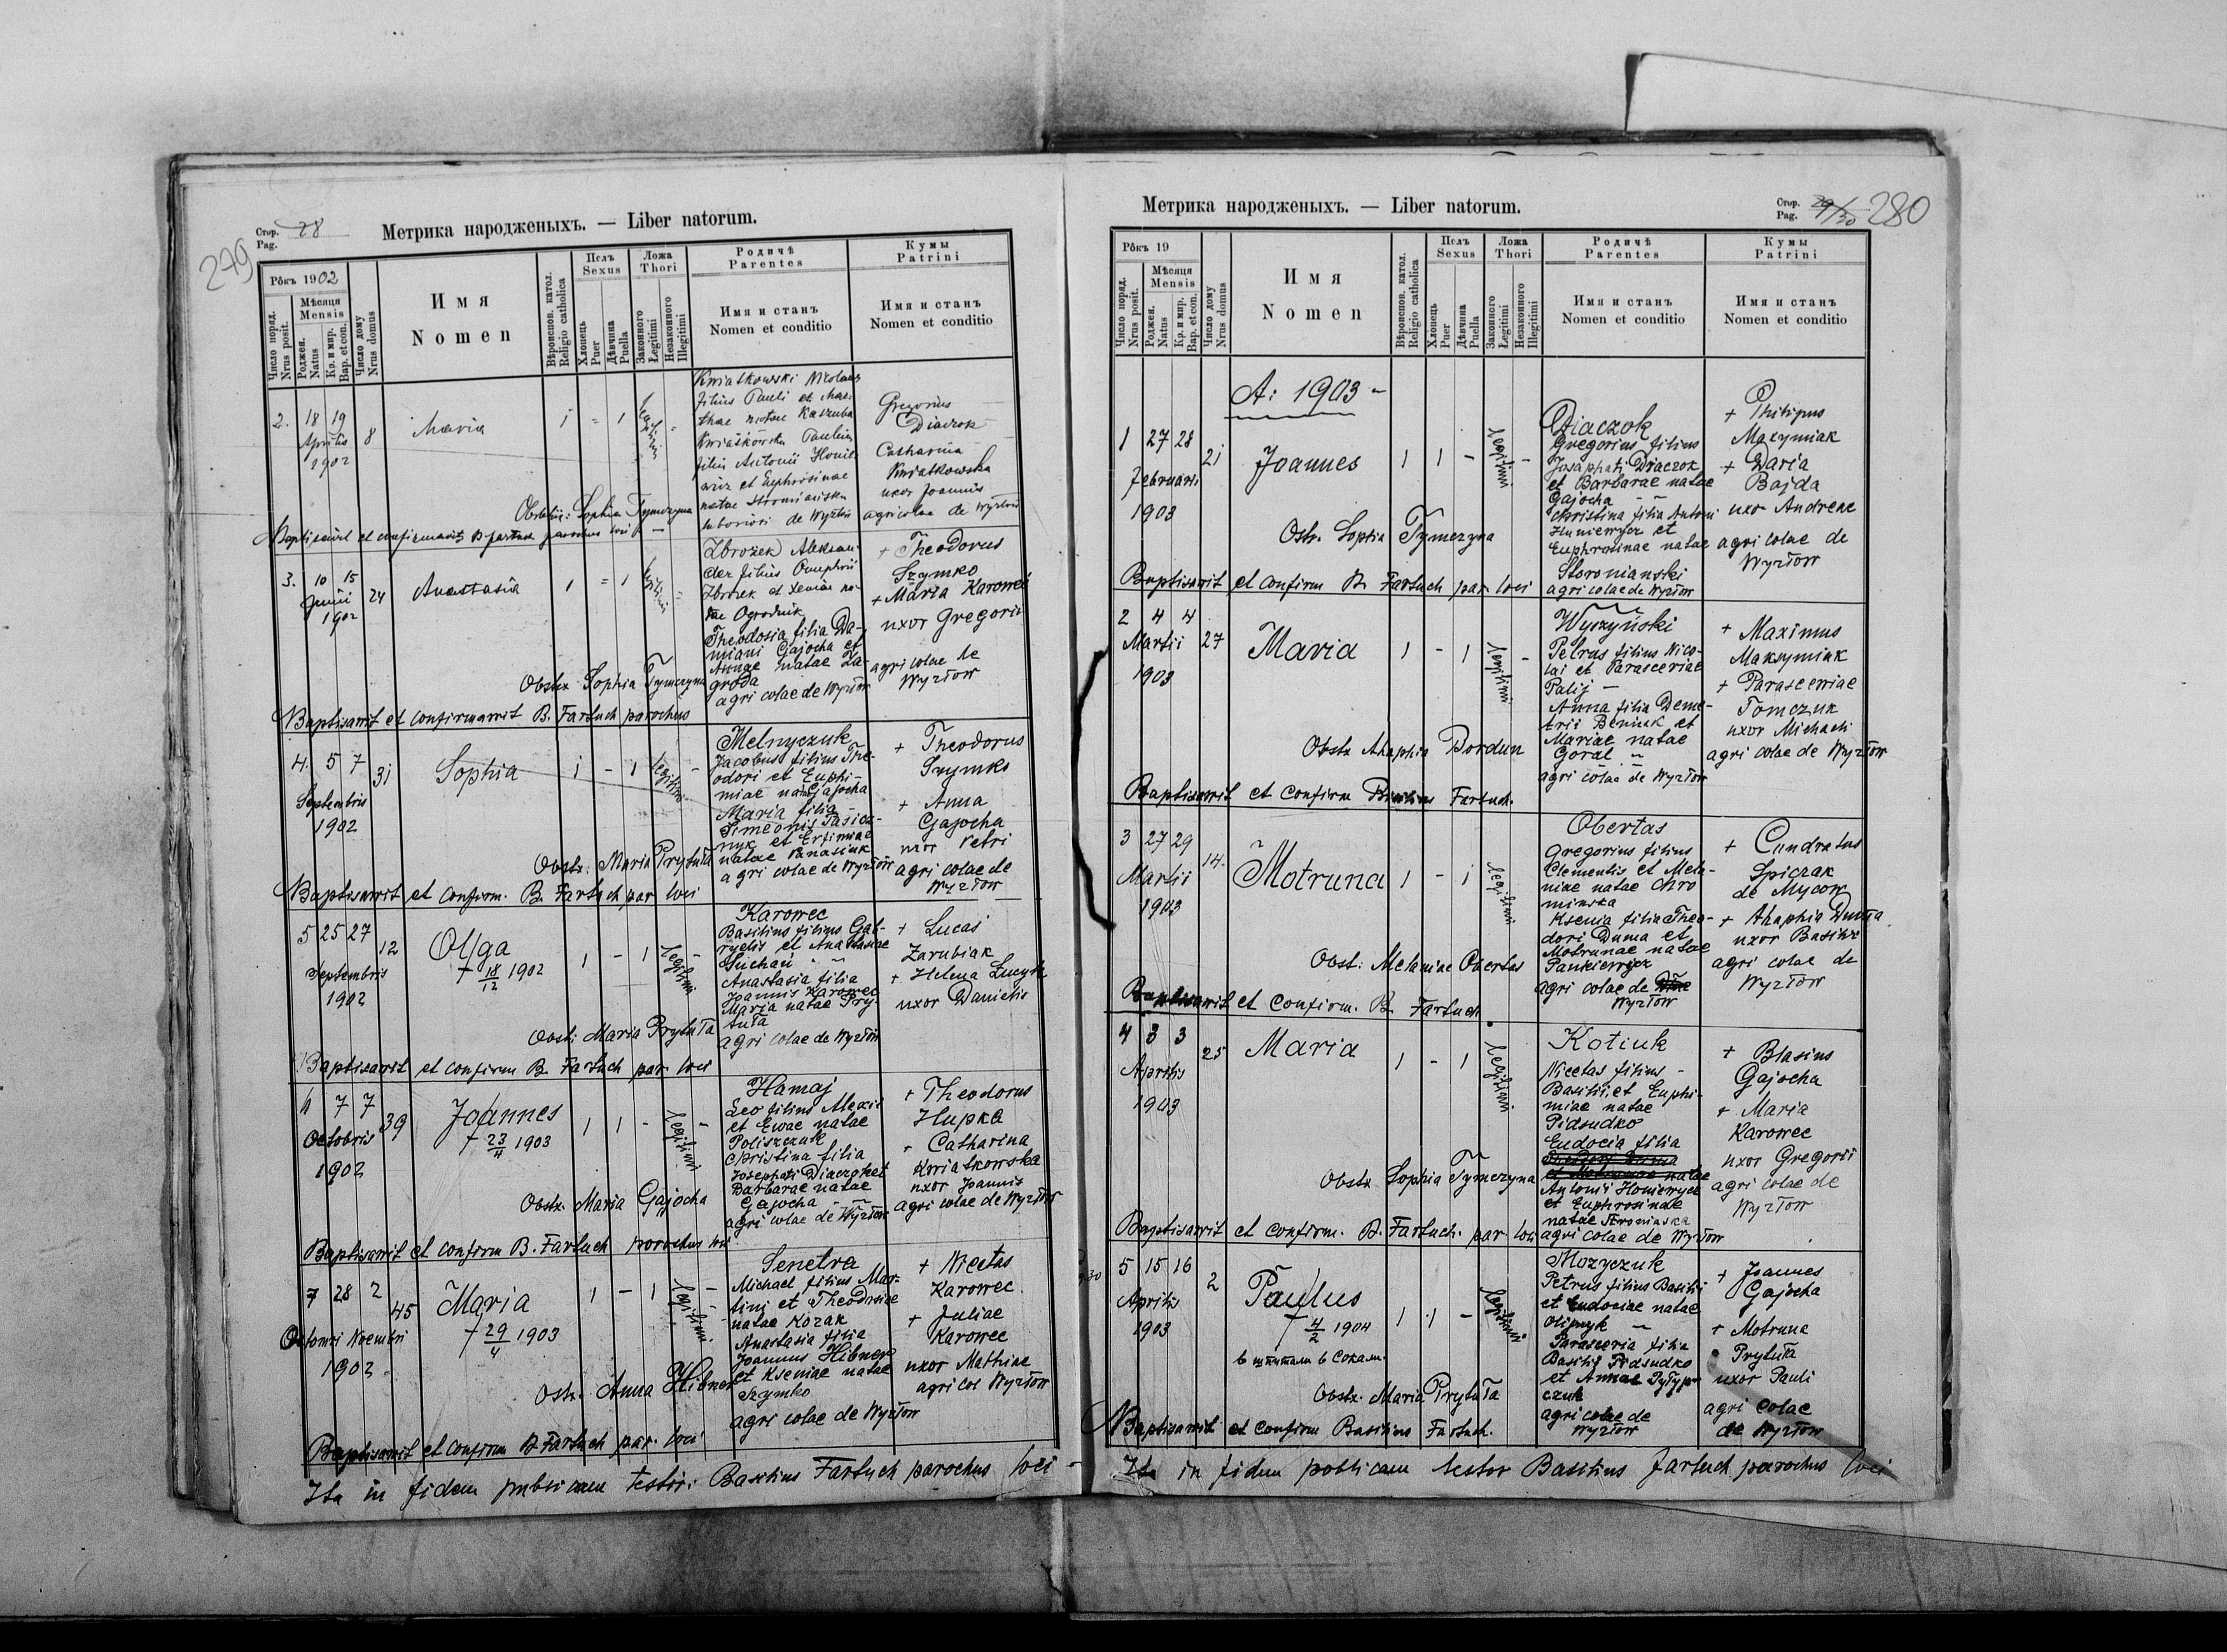 279
Стор. 28
Pag.
Метрика народженыхъ. — Liber natorum.
Рôкъ 1902
Мѣсяця
Mensis
Число поряд.
Nrus posit.
Роджен.
Natus
Кр. и мир.
Bap. et con.
Число дому
Nrus domus
Имя
Nomen
Вѣроиспов. катол.
Religio catholica
Полъ
Sexus
Хлопець
Puer
Дѣвчина
Puella
Ложа
Thori
Законного
Legitimi
Незаконного
Illegitimi
Родичѣ
Parentes
Имя и станъ
Nomen et conditio
Кумы
Patrini
Имя и станъ
Nomen et conditio
2. 18 19 8 Maria 1 = 1
Aprilis
1902
Kwiatkowski Nicolaus
filius Pauli et Mar-
thae natae Kaszuba
Kwiatkowska Paulina
filia Antonii Honie-
wicz et Euphrosinae
natae
de Wyżłów
Gregorius
Diaczok
Catharina
Kwiatkowska
uxor Joannis
agricolae de Wyżłów
Obstetrix: Sophia Tymczyna
Baptisavit et confirmavit B Fartuch parochus loci —
3. 10 15 24 Anastasia 1 = 1
Junii
1902
Zbrożek Aleksan-
der filius Onuphrii
Zbrożek et Xeniae na-
tae Ogrodnik
Theodosia filia Da-
miani Gajocha et
Annae natae Za-
groda
agricolae de Wyżłów
+ Theodorus
Szymko
+ Maria Karowec
uxor Gregorii
agricolae de
Wyżłów
Obstx Sophia Tymczyna
Baptisavit et confirmavit B. Fartuch parochus
4. 5 7 31 Sophia 1 - 1 legitimi -
Septembris
1902
Melnyczuk
Jacobus filius The-
odori et Euphi-
miae natae Gajocha
Maria filia
Simeonis Pasicz-
nyk et Eufimiae
natae Panasiuk
agricolae de Wyżłów
+ Theodorus
Szymko
+ Anna
Gajocha
uxor Petri
agricolae de
Wyżłów
Obstx: Maria Prytuła
Baptisavit et confirm. B. Fartuch par loci
5 25 27 12 Olga 1 - 1 legitimi -
† 18/12 1902
Septembris
1902
Karowec
Basilius filius Gab-
ryelis et Anastasiae
Suchań
Anastasia filia
Joannis Karowec
Maria natae Pry-
tuła
agricolae de Wyżłów
+ Lucas
Zarubiak
+ Helena
uxor Danielis
Obst: Maria Prytuła
Baptisavit et confirm B. Fartuch par loci
6 7 7 39 Joannes 1 1 - legitimi -
† 23/4 1903
Octobris
1902
Hamaj
Leo filius Alexii
et Ewae natae
Poliszczuk
Christina filia
Josephati Diaczok et
Barbarae natae
Gajocha
agricolae de Wyżłów
+ Theodorus
Hupka
+ Catharina
Kwiatkowska
uxor Joannis
agricolae de Wyżłów
Obstx. Maria Gajocha
Baptisavit et confirm B. Fartuch parochus loci
7 28 2 45 Maria 1 - 1 legitimi -
† 29/4 1903
Octobri Noembri
1902
Senetra
Michael filius Mar-
tini et Theodosiae
natae Kozak
Anastasia filia
Joannis Hibner
et Kseniae natae
Szymko
agricolae de Wyżłów
+ Nicetas
Karowec
+ Juliae
Karowec
uxor Mathiae
agricol Wyżłow
Ostx. Anna Hibner
Baptisavit et confirm B Fartuch par. loci
Ita in fidem publicam testor: Basilius Fartuch parochus loci -
Метрика народженыхъ. — Liber natorum.
Стор. 29/30 280
Pag.
Рôкъ 19
Мѣсяця
Mensis
Число поряд.
Nrus posit.
Роджен.
Natus
Кр. и мир.
Bap. et con.
Число дому
Nrus domus
Имя
Nomen
Вѣроиспов. катол.
Religio catholica
Полъ
Sexus
Хлопець
Puer
Дѣвчина
Puella
Ложа
Thori
Законного
Legitimi
Незаконного
Illegitimi
Родичѣ
Parentes
Имя и станъ
Nomen et conditio
Кумы
Patrini
Имя и станъ
Nomen et conditio
A: 1903 -
1 27 28 21 Joannes 1 1 - legitimi -
Februarii
1903
Diaczok
Gregorius filius
Josaphati Diaczok
et Barbarae natae
Gajocha
Christina filia Antoni
Huniewycz et
Euphrosinae natae
Storonianski
agricolae de Wyżłow
+ Philipus
Maxymiak
+ Daria
Bajda
uxor Andreae
agricolae de
Wyżłow
Ostr. Sophia Tymczyna
Baptisavit et confirm B. Fartuch par loci
2 4 4 27 Maria 1 - 1 legitimi -
Martii
1903
Wyszyński
Petrus filius Nico-
lai et Parasceviae
Palij -
Anna filia Deme-
trii Beniuk et
Mariae natae
Goral
agricolae de Wyżłow
+ Maximus
Maksymiak
+ Parasceviae
Tomczuk
uxor Michaeli
agricolae de Wyżłow
Obstx Ahaphia Dordun
Baptisavit et confirm Basilius Fartuch.
3 27 29 14 Motruna 1 - 1 legitimi
Martii
1903
Obertas
Gregorius filius
Clementis et Mela-
niae natae Chro
minska
Ksenia filia Theo-
dori Duma et
Motrunae natae
Pankiewycz
agricolae de
Wyżłow
+ Cundratus
Spiczak
de Mycow
+ Ahaphia Duma
uxor Basilii
agricolae de
Wyżłow
Obst: Melaniae Obertas
Baptisavit et confirm. B. Fartuch
4 3 3 25 Maria 1 - 1 legitimi
Aprilis
1903
Kotiuk
Nicetas filius -
Basilii et Euphi-
miae natae
Pidsudko
Eudocia filia
Theodori Duma
et Motrunae natae
Antonii Honiewycz
et Euphrosinae
natae Stroniaska
agricolae de Wyżłow
+ Blasius
Gajocha
+ Maria
Karowec
uxor Gregorii
agricolae de
Wyżłow
Obstx Sophia Tymczyna
Baptisavit et confirm. B. Fartuch. par loci
5 15 16 2 Paulus 1 1 - legitimi
† 4/2 1904
в шпитали в Сокали.
Aprilis
1903
Mozyczuk
Petrus filius Basilii
et Eudociae natae
Olijnyk -
Parascevia filia
Basilij Pidsudko
et Annae
czuk
agricolae de
Wyżłow
+ Joannes
Gajocha
+ Motruna
Prytuła
uxor Pauli
agricolae
de Wyżłow
Obstx. Maria Prytuła
Baptisavit et confirm Basilius Fartuch.
Ita in fidem publicam testor Basilius Fartuch parochus loci